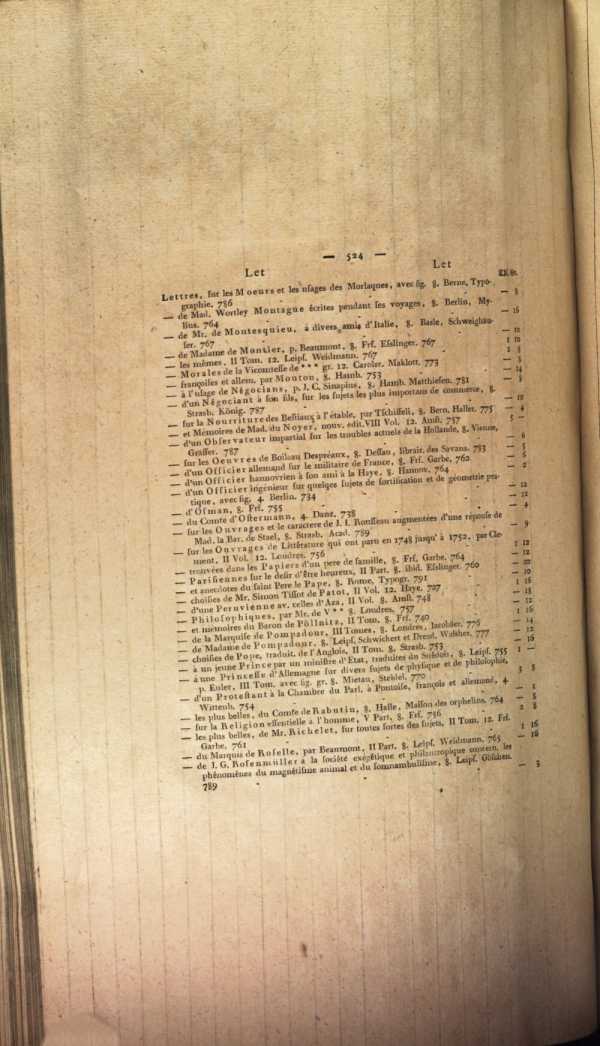 — 524 —
Let Let
Rß. Gr.
Lettres, ſur les Moeurs et les uſages des Morlaques, avec fig. 8. Berne, Typo-
graphie. 786 — 8
— de Mad. Wortley Montague écrites pendant ſes voyages, 8. Berlin, My-
lius. 764 — 16
— de Mr. de Montesquieu, à divers amis d'Italie, 8. Basle, Schweighäu-
ſer. 767
— de Madame de Montier, p. Beaumont, 8. Frf. Eſslinger. 767
— les mêmes, II Tom. 12. Leipſ. Weidmann. 767
— Morales de la Vicomteſſe de *** gr. 12. Carolsr. Maklott. 773
— françoiſes et allem. par Mouton, 8. Hamb. 753
— à l'uſage de Négocians, p. J. C. Sinapius, 8. Hamb. Matthieſen. 781
— d'un Négociant à ſon fils, ſur les ſujets les plus importans de commerce, 8.
Strasb. König. 787
— ſur la Nourriture des Beſtiaux à l'étable, par Tſchiffeli, 8. Bern, Haller. 775
— et Mémoires de Mad. du Noyer, nouv. édit. VIII Vol. 12. Amſt. 757
— d'un Obſervateur impartial ſur les troubles actuels de la Hollande, 8. Vienne,
Graeffer. 787
— ſur les Oeuvres de Boileau Despréaux, 8. Deſſau, librair. des Savans. 783
— d'un Officier allemand ſur le militaire de France, 8. Frf. Garbe, 762
— d'un Officier hannovrien à ſon ami à la Haye, 8. Hannov. 764
— d'un Officier ingénieur ſur quelques ſujets de fortification et de géometrie pra-
tique, avec fig. 4. Berlin. 734
— d'Oſman, 8. Frf. 755
— du Comte d'Oſtermann, 4. Danz. 738
— ſur les Ouvrages et le caractere de J. J. Rouſſeau augmentées d'une réponſe de
Mad. la Bar. de Stael, 8. Strasb. Acad. 789
— ſur les Ouvrages de Littérature qui ont paru en 1748 jusqu' à 1752. par Cle-
ment, II Vol. 12. Londres. 756
— trouvées dans les Papiers d'un pere de famille, 8. Frf. Garbe. 764
— Pariſiennes ſur le deſir d'être heureux, II Part. 8. ibid. Eſslinger. 760
— et anecdotes du ſaint Pere le Pape, 8. Rome, Typogr. 791
— choiſies de Mr. Simon Tiſſot de Patot, II Vol. 12. Haye. 727
— d'une Peruvienne av. celles d'Aza, II Vol. 8. Amſt. 748
— Philoſophiques, par Mr. de V** 8. Londres. 757
— et mémoires du Baron de Pöllnitz, II Tom. 8. Frf. 740
— de la Marquiſe de Pompadour, III Tomes, 8. Londres, Jacobäer. 776
— de Madame de Pompadour, 8. Leipſ. Schwickert et Dresd. Walther. 777
— choiſies de Pope, traduit. de l'Anglois, II Tom. 8. Strasb. 753
— à un jeune Prince par un miniſtre d'Etat, traduites du Suédois, 8. Leipſ. 755 1 —
— à une Princeſſe d'Allemagne ſur divers ſujets de phyſique et de philoſophie,
p. Euler, III Tom. avec fig. gr. 8. Mietau, Steidel. 770
— d'un Proteſtant à la Chambre du Parl. à Pontoiſe, françois et allemand, 4.
Wittenb. 754
— les plus belles, du Comte de Rabutin, 8. Halle, Maiſon des orphelins. 764
— ſur la Religion eſſentielle à l'homme, V Part. 8. Frf. 756
— les plus belles, de Mr. Richelet, ſur toutes ſortes des ſujets, II Tom. 12. Frf.
Garbe. 761 1 16
— du Marquis de Roſelle, par Beaumont, II Part. 8. Leipſ. Weidmann. 765 — 16
— de J. G. Roſenmüller à la ſociété exégétique et philantropique concern. les
phénomènes du magnétiſme animal et du ſomnambuliſme, 8. Leipſ. Göſchen.
789 — 3